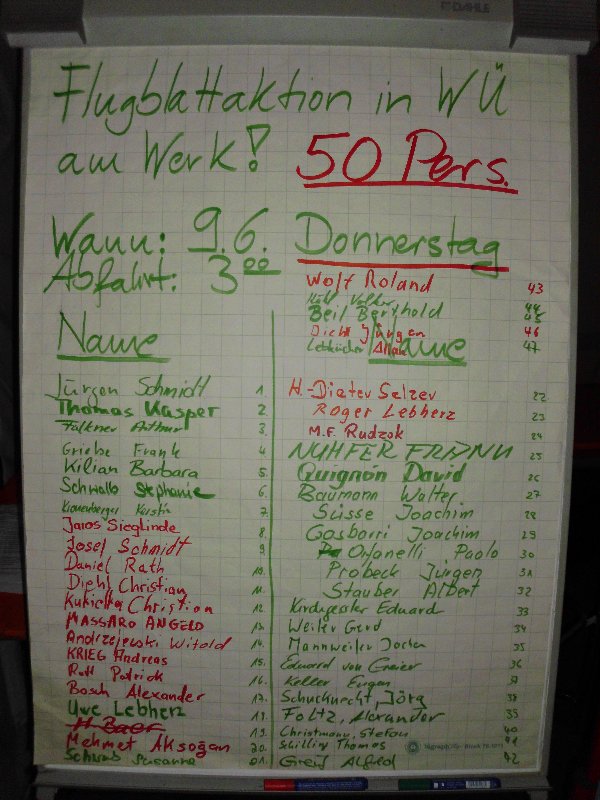 DAHLE
Flugblattaktion in WÜ
am Werk! 50 Pers.
Wann: 9.6. Donnerstag
Abfahrt: 3 00
Wolf Roland 43
Volker 44
Beil Berthold 45
Diehl Jürgen 46
Lebkücher 47
Name
Name
Jürgen Schmidt 1.
Thomas Kasper 2.
Falkner Arthur 3.
Griebe Frank 4
Kilian Barbara 5.
Schwalb Stephanie 6.
Kronenberger Kerstin 7.
Jaros Sieglinde 8.
Josef Schmidt 9
Daniel Rath 10.
Diehl Christian 11.
Kukielka Christian 12.
MASSARO ANGELO 13.
Andrzejewski Witold 14.
KRIEG Andreas 15.
Rott Patrick 16.
Bosch Alexander 17.
Uwe Lebherz
H. Baer 19.
Mehmet Aksoğan 20.
Schwab Susanne 21.
H.-Dieter Selzer 22
Roger Lebherz 23
M.F. Rudzok 24
NUHFER 25
Quignon David 26
Baumann Walter 27
Süsse Joachim 28
Gasbarri Joachim 29
Orfanelli Paolo 30
Probeck Jürgen 31
Stauber Albert 32
Kirchgessler Eduard 33
Weiler Gerd 34
Mannweiler Jochen 35
Eduard von Greier 36
Keller Eugen 37
Schucknecht, Jörg 38
Foltz, Alexander 39
Christmann, Stefan 40
Schilling Thomas 41
Greif Alfred 42